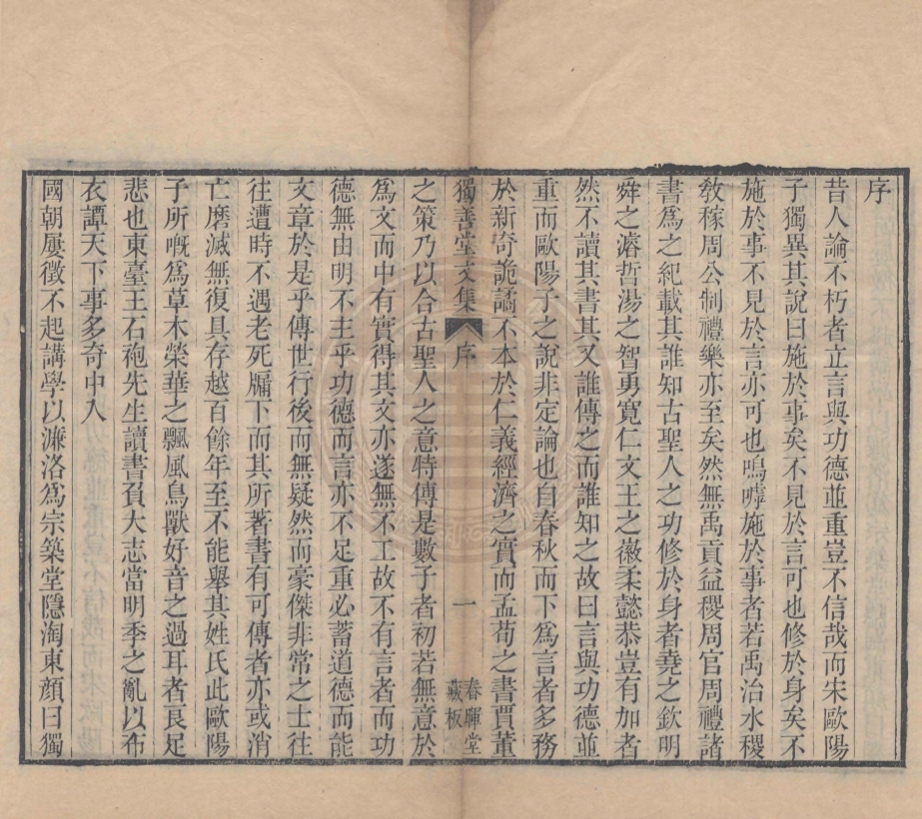 序
昔人論不朽者立言與功德並重豈不信哉而宋歐陽
子獨異其說曰施於事矣不見於言可也修於身矣不
施於事不見於言亦可也嗚嘑施於事者若禹治水稷
敎稼周公制禮樂亦至矣然無禹貢益稷周官周禮諸
書爲之紀載其誰知古聖人之功修於身者堯之欽明
舜之濬哲湯之智勇寬仁文王之徽柔懿恭豈有加者
然不讀其書其又誰傳之而誰知之故曰言與功德並
重而歐陽子之說非定論也自春秋而下爲言者多務
於新奇詭譎不本於仁義經濟之實而孟荀之書賈董
獨善堂文集 序 一 春暉堂藏板
之策乃以合古聖人之意特傳是數子者初若無意於
爲文而中有實得其文亦遂無不工故不有言者而功
德無由明不主乎功德而言亦不足重必蓄道德而能
文章於是乎傳世行後而無疑然而豪傑非常之士往
往遭時不遇老死牖下而其所著書有可傳者亦或消
亡磨滅無復具存越百餘年至不能舉其姓氏此歐陽
子所嘅爲草木榮華之飄風鳥獸好音之過耳者良足
悲也東臺王石袍先生讀書負大志當明季之亂以布
衣譚天下事多奇中入
國朝屢徵不起講學以濂洛爲宗築堂隱淘東顏曰獨